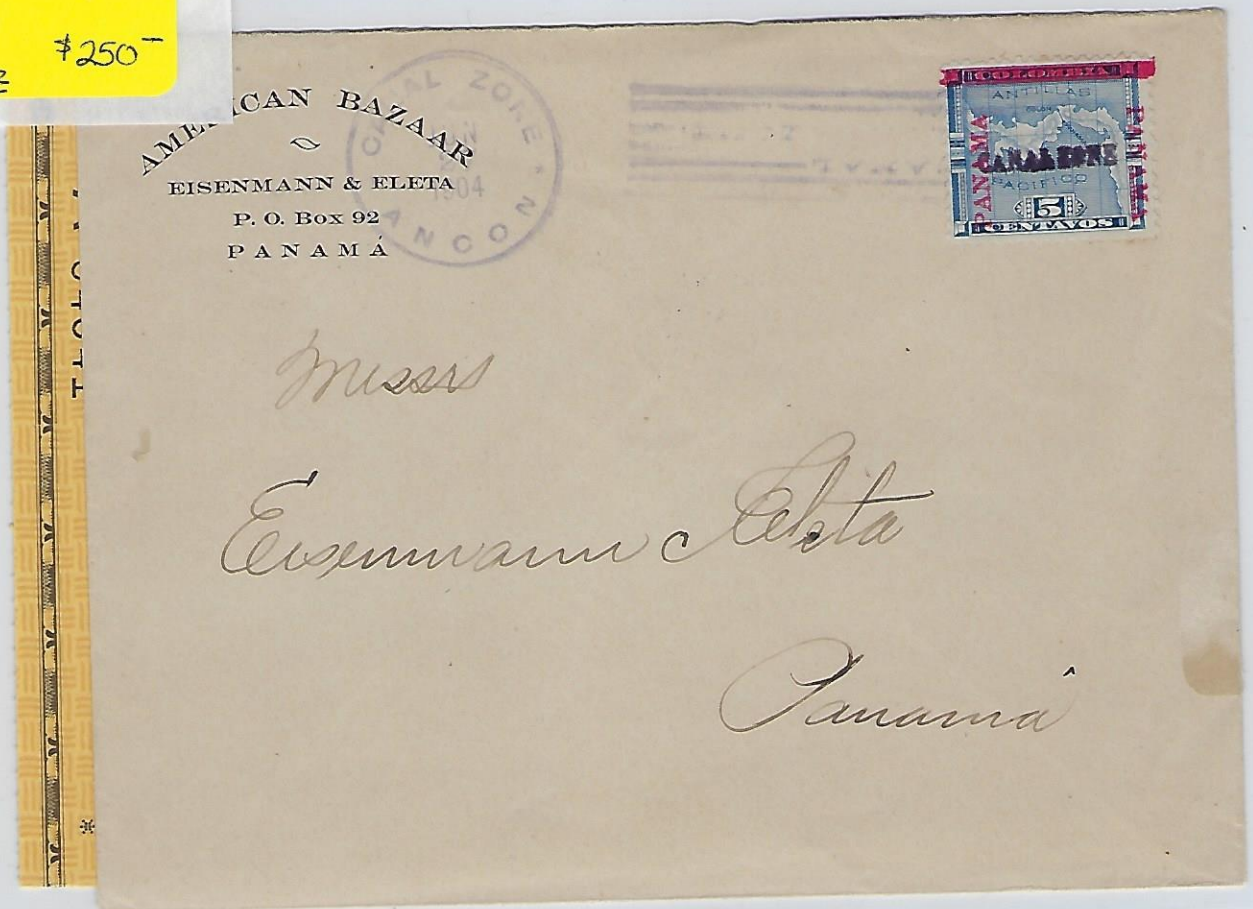 $250-
AMERICAN BAZAAR
EISENMANN & ELETA
P. O. Box 92
PANAMÁ
CANAL ZONE
1904
ANCON
COLOMBIA
ANTILLAS
PANAMA
CANAL ZONE
PANAMA
PACIFICO
5
CENTAVOS
Messrs
Eisenmann & Eleta
Panamá